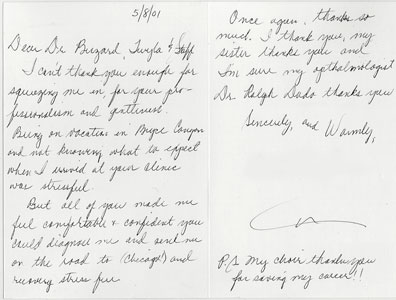 5/8/01
Dear Dr Buzard, Twyla & Staff
I can't thank you enough for
squeezing me in, for your pro-
fessionalism and gentleness.
Being on vacation in Bryce Canyon
and not knowing what to expect
when I arrived at your clinic
was stressful.
But all of you made me
feel comfortable & confident you
could diagnose me and send me
on the road to (Chicago!) and
recovery stress free
Once again, thanks so
much. I thank you, my
sister thanks you and
I'm sure my opthalmologist
Dr Ralph Dado thanks you
Sincerely, and Warmly,
P/S My choir thanks you
for saving my career!!